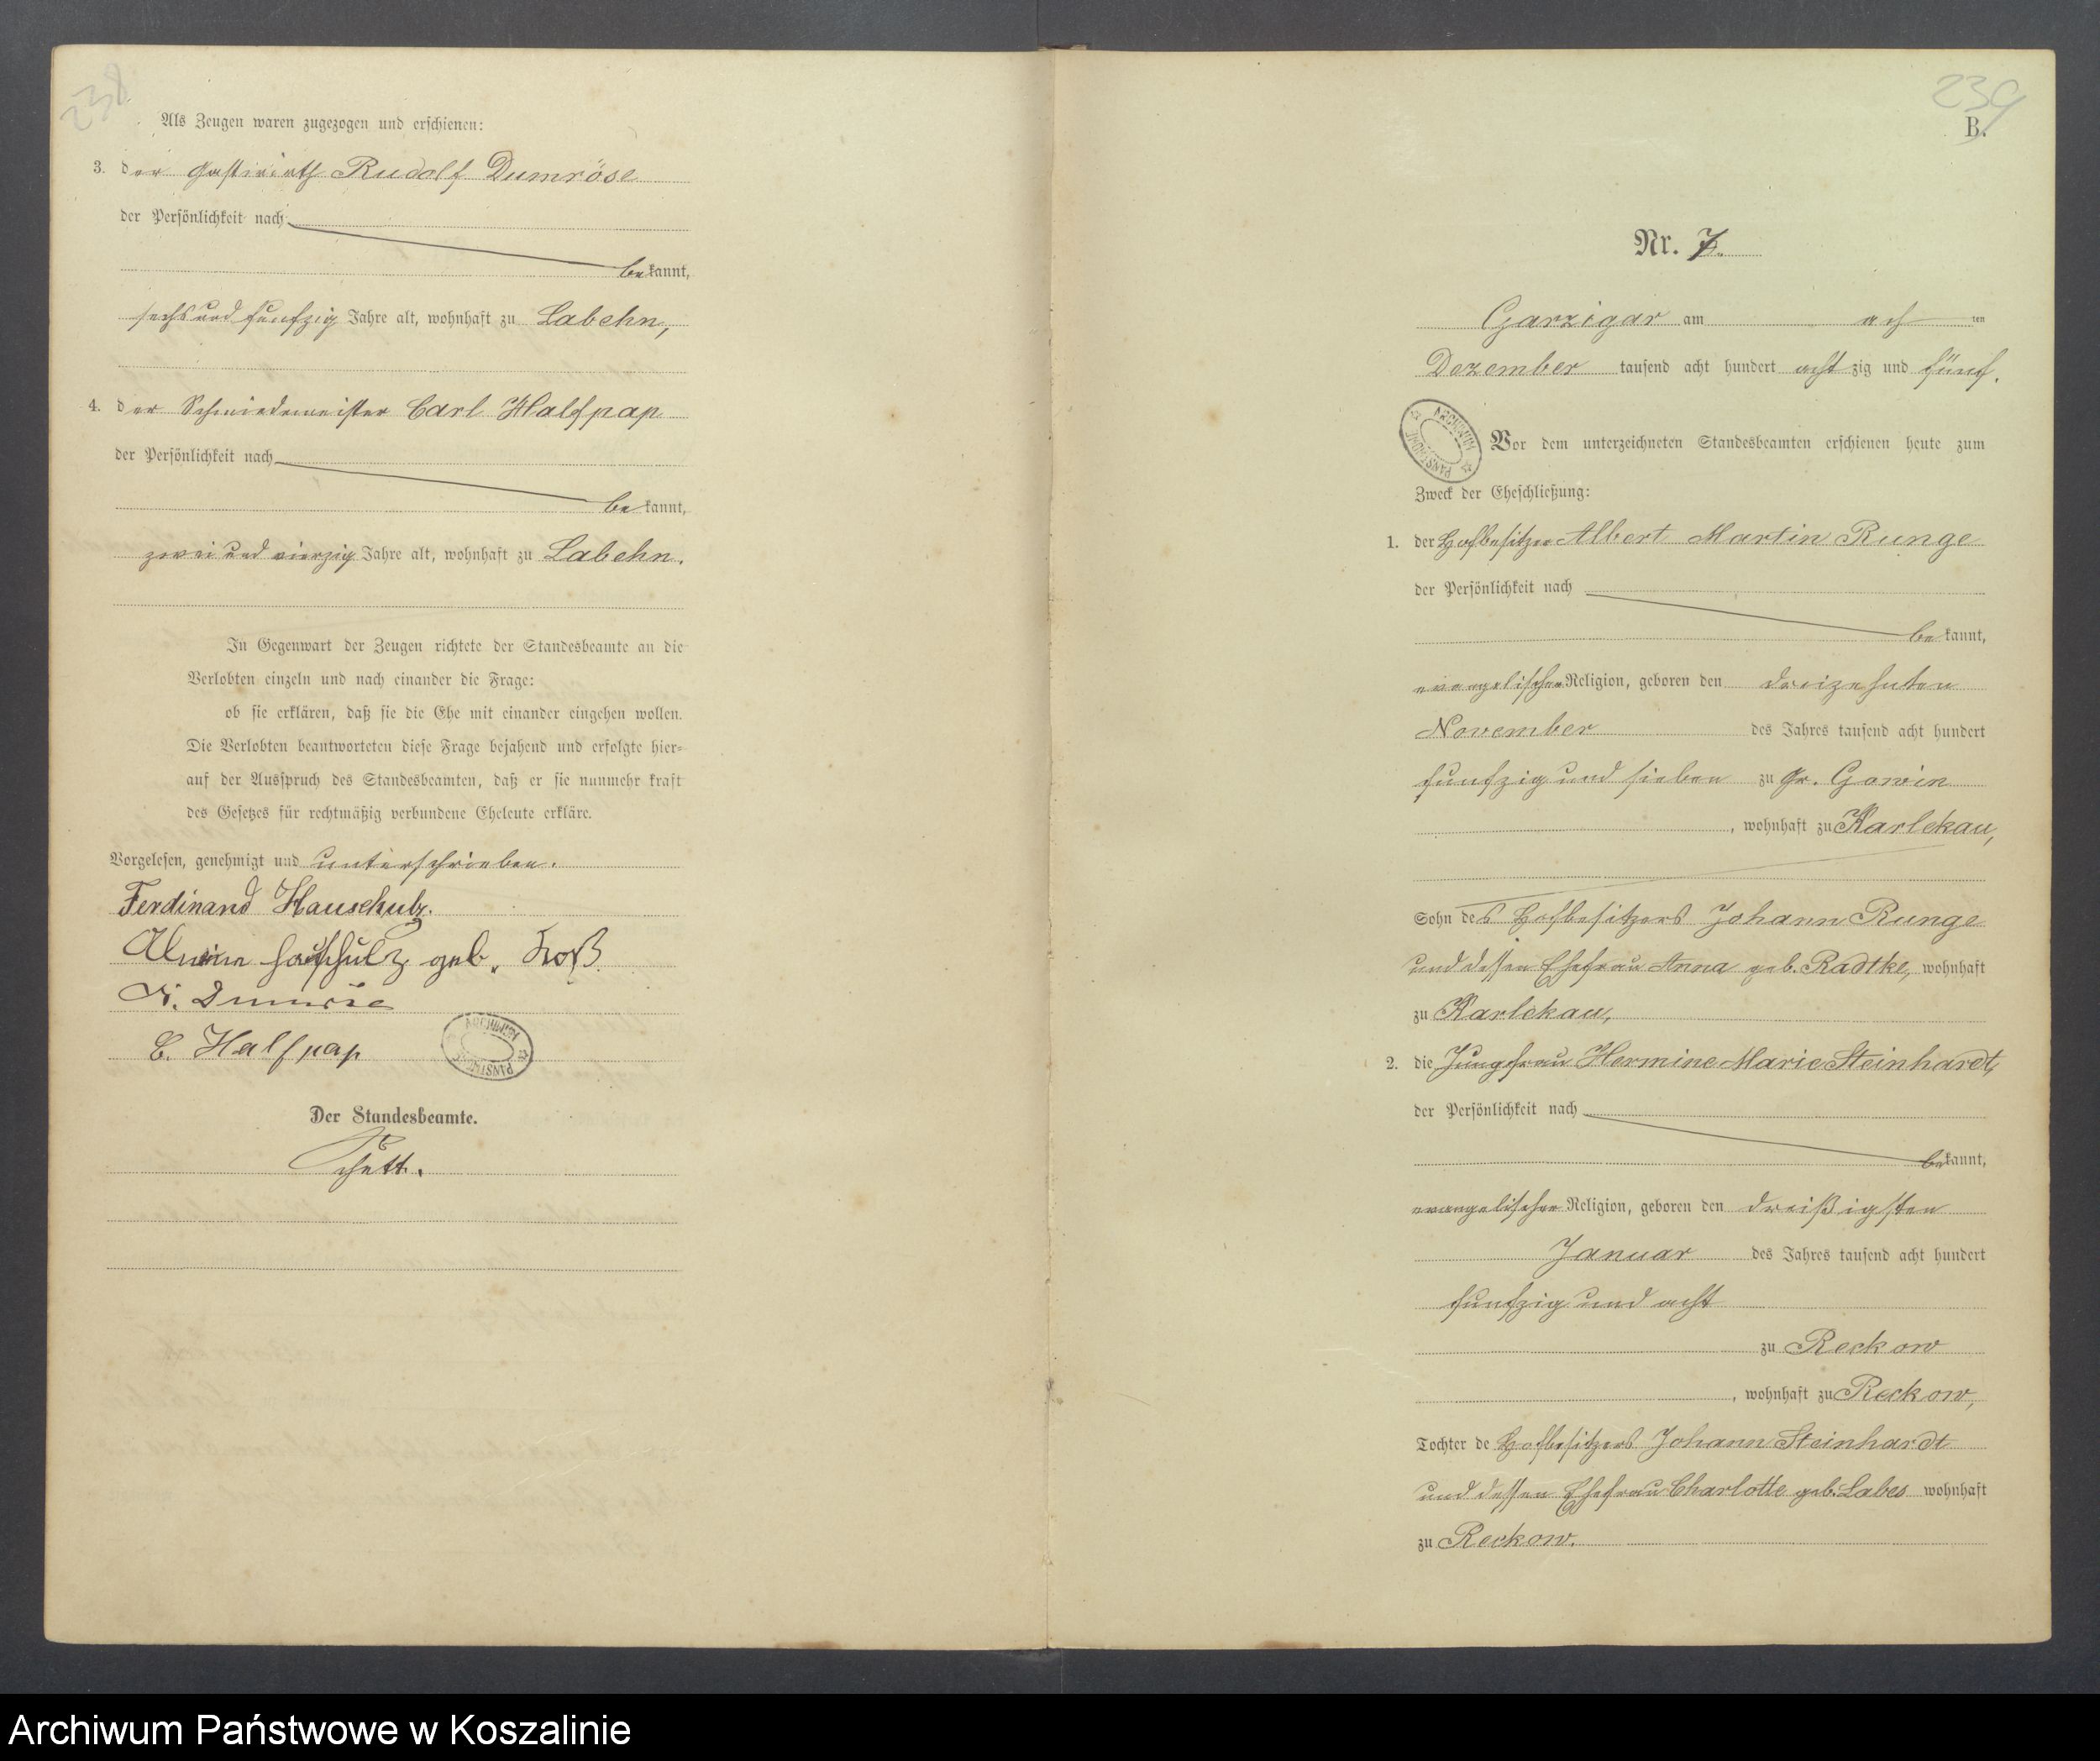 238
Als Zeugen waren zugezogen und erschienen:
3. der Gastwirth Rudolf Dumröse
der Persönlichkeit nach
bekannt,
sechs und funfzig Jahre alt, wohnhaft zu Labehn,
4. der Schmiedemeister Carl Halfpap
der Persönlichkeit nach
bekannt,
zwei und vierzig Jahre alt, wohnhaft zu Labehn.
In Gegenwart der Zeugen richtete der Standesbeamte an die
Verlobten einzeln und nach einander die Frage:
ob sie erklären, daß sie die Ehe mit einander eingehen wollen.
Die Verlobten beantworteten diese Frage bejahend und erfolgte hier-
auf der Ausspruch des Standesbeamten, daß er sie nunmehr kraft
des Gesetzes für rechtmäßig verbundene Eheleute erkläre.
Vorgelesen, genehmigt und unterschrieben.
Ferdinand Hauschulz.
Hauschulz geb.
R. Dumröse
C. Halfpap
ARCHIWUM PAŃSTWOWE
Der Standesbeamte.
239
B.
Nr. 7.
Garzigar am acht ten
Dezember tausend acht hundert acht zig und fünf.
ARCHIWUM PAŃSTWOWE
Vor dem unterzeichneten Standesbeamten erschienen heute zum
Zweck der Eheschließung:
1. der Hofbesitzer Albert Martin Runge
der Persönlichkeit nach
bekannt,
evangelischer Religion, geboren den dreizehnten
November des Jahres tausend acht hundert
funfzig und sieben zu Gr. Gowin
, wohnhaft zu Karlekau,
Sohn des Hofbesitzers Johann Runge
und dessen Ehefrau Anna geb. Radtke, wohnhaft
zu Karlekau,
2. die Jungfrau Hermine Marie Steinhardt,
der Persönlichkeit nach
bekannt,
evangelischer Religion, geboren den dreißigsten
Januar des Jahres tausend acht hundert
funfzig und acht
zu Reckow
, wohnhaft zu Reckow,
Tochter de Hofbesitzers Johann Steinhardt
und dessen Ehefrau Charlotte geb. Labes wohnhaft
zu Reckow.
Archiwum Państwowe w Koszalinie